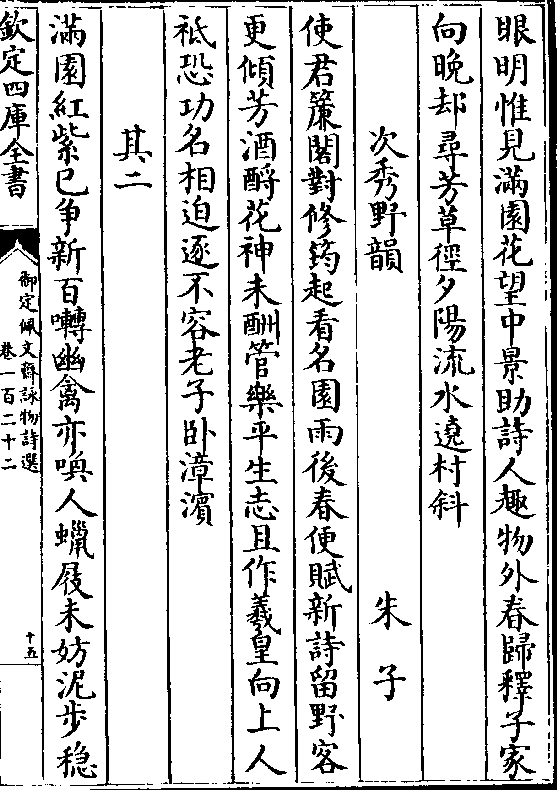 眼明惟見滿園花望中景助詩人趣物外春歸釋子家
向晚却尋芳草徑夕陽流水遶村斜
次秀野韻　朱子
使君簾閣對修筠起看名園雨後春便賦新詩留野客
更傾芳酒酹花神未酬管樂平生志且作羲皇向上人
祗恐功名相迫逐不容老子卧漳濱
其二
滿園紅紫已争新百囀幽禽亦喚人蠟屐未妨泥步穏
欽定四庫全書
御定佩文齋詠物詩選
卷一百二十二
十五